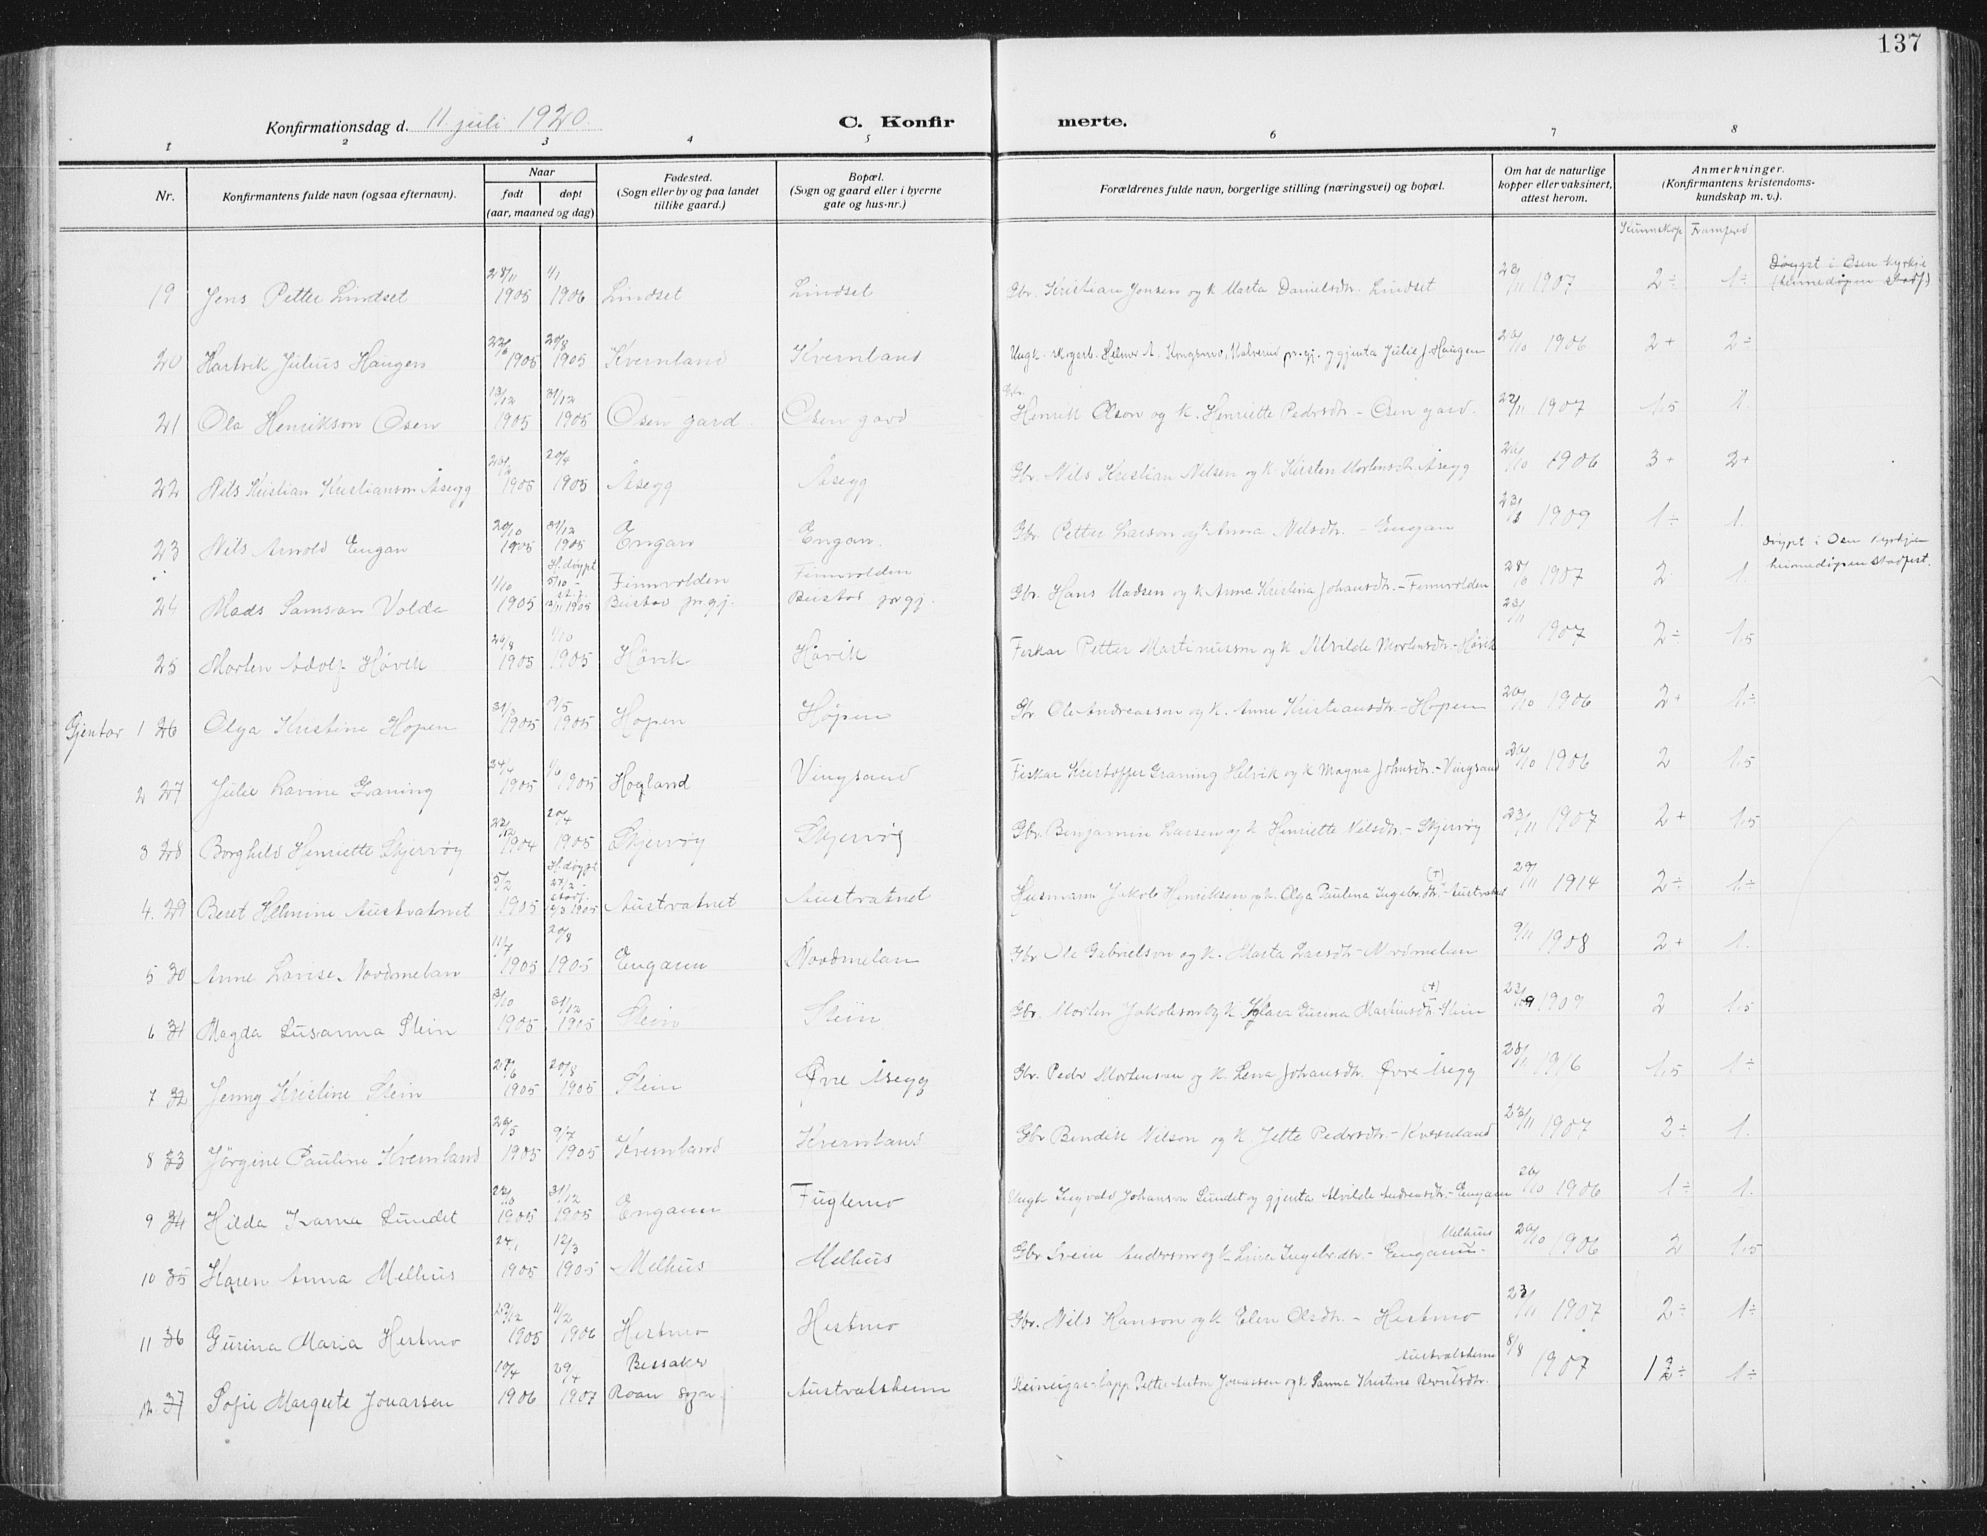 137
Konfirmationsdag d. 11 juli 1920.
C. Konfir merte.
1 2 3 4 5 6 7 8
Nr.
Konfirmantens fulde navn (ogsaa efternavn).
Naar
født døpt
(aar, maaned og dag)
Fødested.
(Sogn eller by og paa landet
tillike gaard.)
Bopæl.
(Sogn og gaard eller i byerne
gate og hus-nr.)
Forældrenes fulde navn, borgerlige stilling (næringsvei) og bopæl.
Om hat de naturlige
kopper eller vaksinert,
attest herom.
Anmerkninger.
(Konfirmantens kristendoms-
kundskap m. v.).
Kunnskap Framferd
19 Jens Petter Lindset 28/11 1905 1/1 1906 Lindset Lindset Gbr. Kristian Jensen og k. Marta Danielsdtr. Lindset 23/11 1907 2÷ 1÷ Døypt i Osen kyrkje
(heimedåpen stadf.)
20 Hartvik Julius Haugen 1905 20/8 1905 Kvernland Kvernland Ungk. skogarb. Helmer A. Kongsmo, pr. gj. og gjenta Julie J. Haugen 1906 2+ 2÷
21 Ola Henrikson Osen 13/12 1905 31/12 1905 Osen gard. Osen gard Gbr. Henrik Olson og k. Henriette Pedersdtr. - Osen gard. 22/11 1907 1,5 1.
22 Nils Kristian Kristianson Åsegg 1905 20/4 1905 Åsegg Åsegg Gbr. Nils Kristian Nilsen og k. Kirsten Mortensdtr. Åsegg 1906 3+ 2+
23 Nils Arnold Engan 20/10 1905 31/12 1905 Engan Engan. Gbr. Petter Larson og k. Anna Nilsdtr. - Engan 1909 1÷ 1.
24 Mads Samson Volde 1/10 1905 H. døypt 5/10 - st. gj. 12/11 1905 Finnvolden Bustad pr gj. Finnvolden Bustad pr gj. Gbr. Hans Madsen og k. Anna Kristina Johansdtr. - Finnvolden 1907 2 1. Døypt i Osen kyrkje
heimedåpen stadfest.
25 Morten Adolf Høvik 20/8 1905 1/10 1905 Høvik Høvik Fiskar Petter Martinusson og k. Alvilde Mortensdtr. - Høvik 23/11 1907 2÷ 1,5
Gjentor 1 26 Olga Kristine Hopen 31/3 1905 1905 Hopen Hopen Gbr. Ole Andreasson og k. Anne Kristiansdtr. - Hopen 20/10 1906 2+ 1÷
2 27 Julie Lavine Graning 24/4 1905 1/6 1905 Hogland Vingsand Fiskar Kristoffer Graning Helvik og k. Magna Johnsdtr. - Vingsand 1906 2 1,5
3 28 Borghild Henriette Skjervøy 22/12 1904 20/4 1905 Skjervøy Skjervøy Gbr. Benjamin Larsen og k. Henriette Nilsdtr. - Skjervøy 23/11 1907 2+ 1,5
4. 29 Beret Helmine Austvatnet 5/2 1905 H. døypt 1905 Austvatnet Austvatnet Husmann Jakob Henrikson og k. Olga Paulina Ingebr.dtr. (+) - Austvatnet 1914 2÷ 1÷
5 30 Anne Lovise Nordmelan 11/7 1905 20/8 1905 Engann Nordmelan Gbr. Ole Gabrielson og k. Marta Larsdtr - Nordmelan 9/11 1908 2+ 1.
6 31 Magda Susanna Stein 3/10 1905 31/12 1905 Stein Stein Gbr. Morten Jakobson og k. Klara Gurena Martinsdtr. (+) - Stein 1909 2 1,5
7 32 Jenny Kristine Stein 1905 20/8 1905 Stein Øvre Åsegg Gbr. Peder Mortensen og k. Lena Johansdtr. Øvre Åsegg 1916 1,5 1÷
8 33 Jørgine Pauline Kvernland 1905 9/7 1905 Kvernland Kvernland Gbr Bendik Nilson og k. Jette Pedersdtr. - Kvernland 23/11 1907 2÷ 1.
9 34 Hilda Ivarna Sundet 1905 31/12 1905 Engann Fuglemo Ungk Ingvald Johanson Sundet og gjenta Alvilde Andreasdtr. - Engann 1906 1÷ 1.
10 35 Karen Anna Melhus 24/1 1905 12/3 1905 Melhus Melhus Gbr Svein Anderson og k. Lina Ingebr.dtr. - Engann - Melhus 20/10 1906 2 1,5
11 36 Gurina Maria Hestmo 23/12 1905 11/2 1906 Hestmo Hestmo Gbr. Nils Hanson og k. Elen Olsdtr. - Hestmo 23/11 1907 2÷ 1÷
12. 37 Sofie Margrete Jonassen 19/4 1906 29/4 1907 Bessaker Roan sogn Austvatsheim Reineigar - lapp Petter Anton Jonassen og k. Sanna Kristine Berntsdtr. Austvatsheim 8/8 1907 1 3/2÷ 1÷